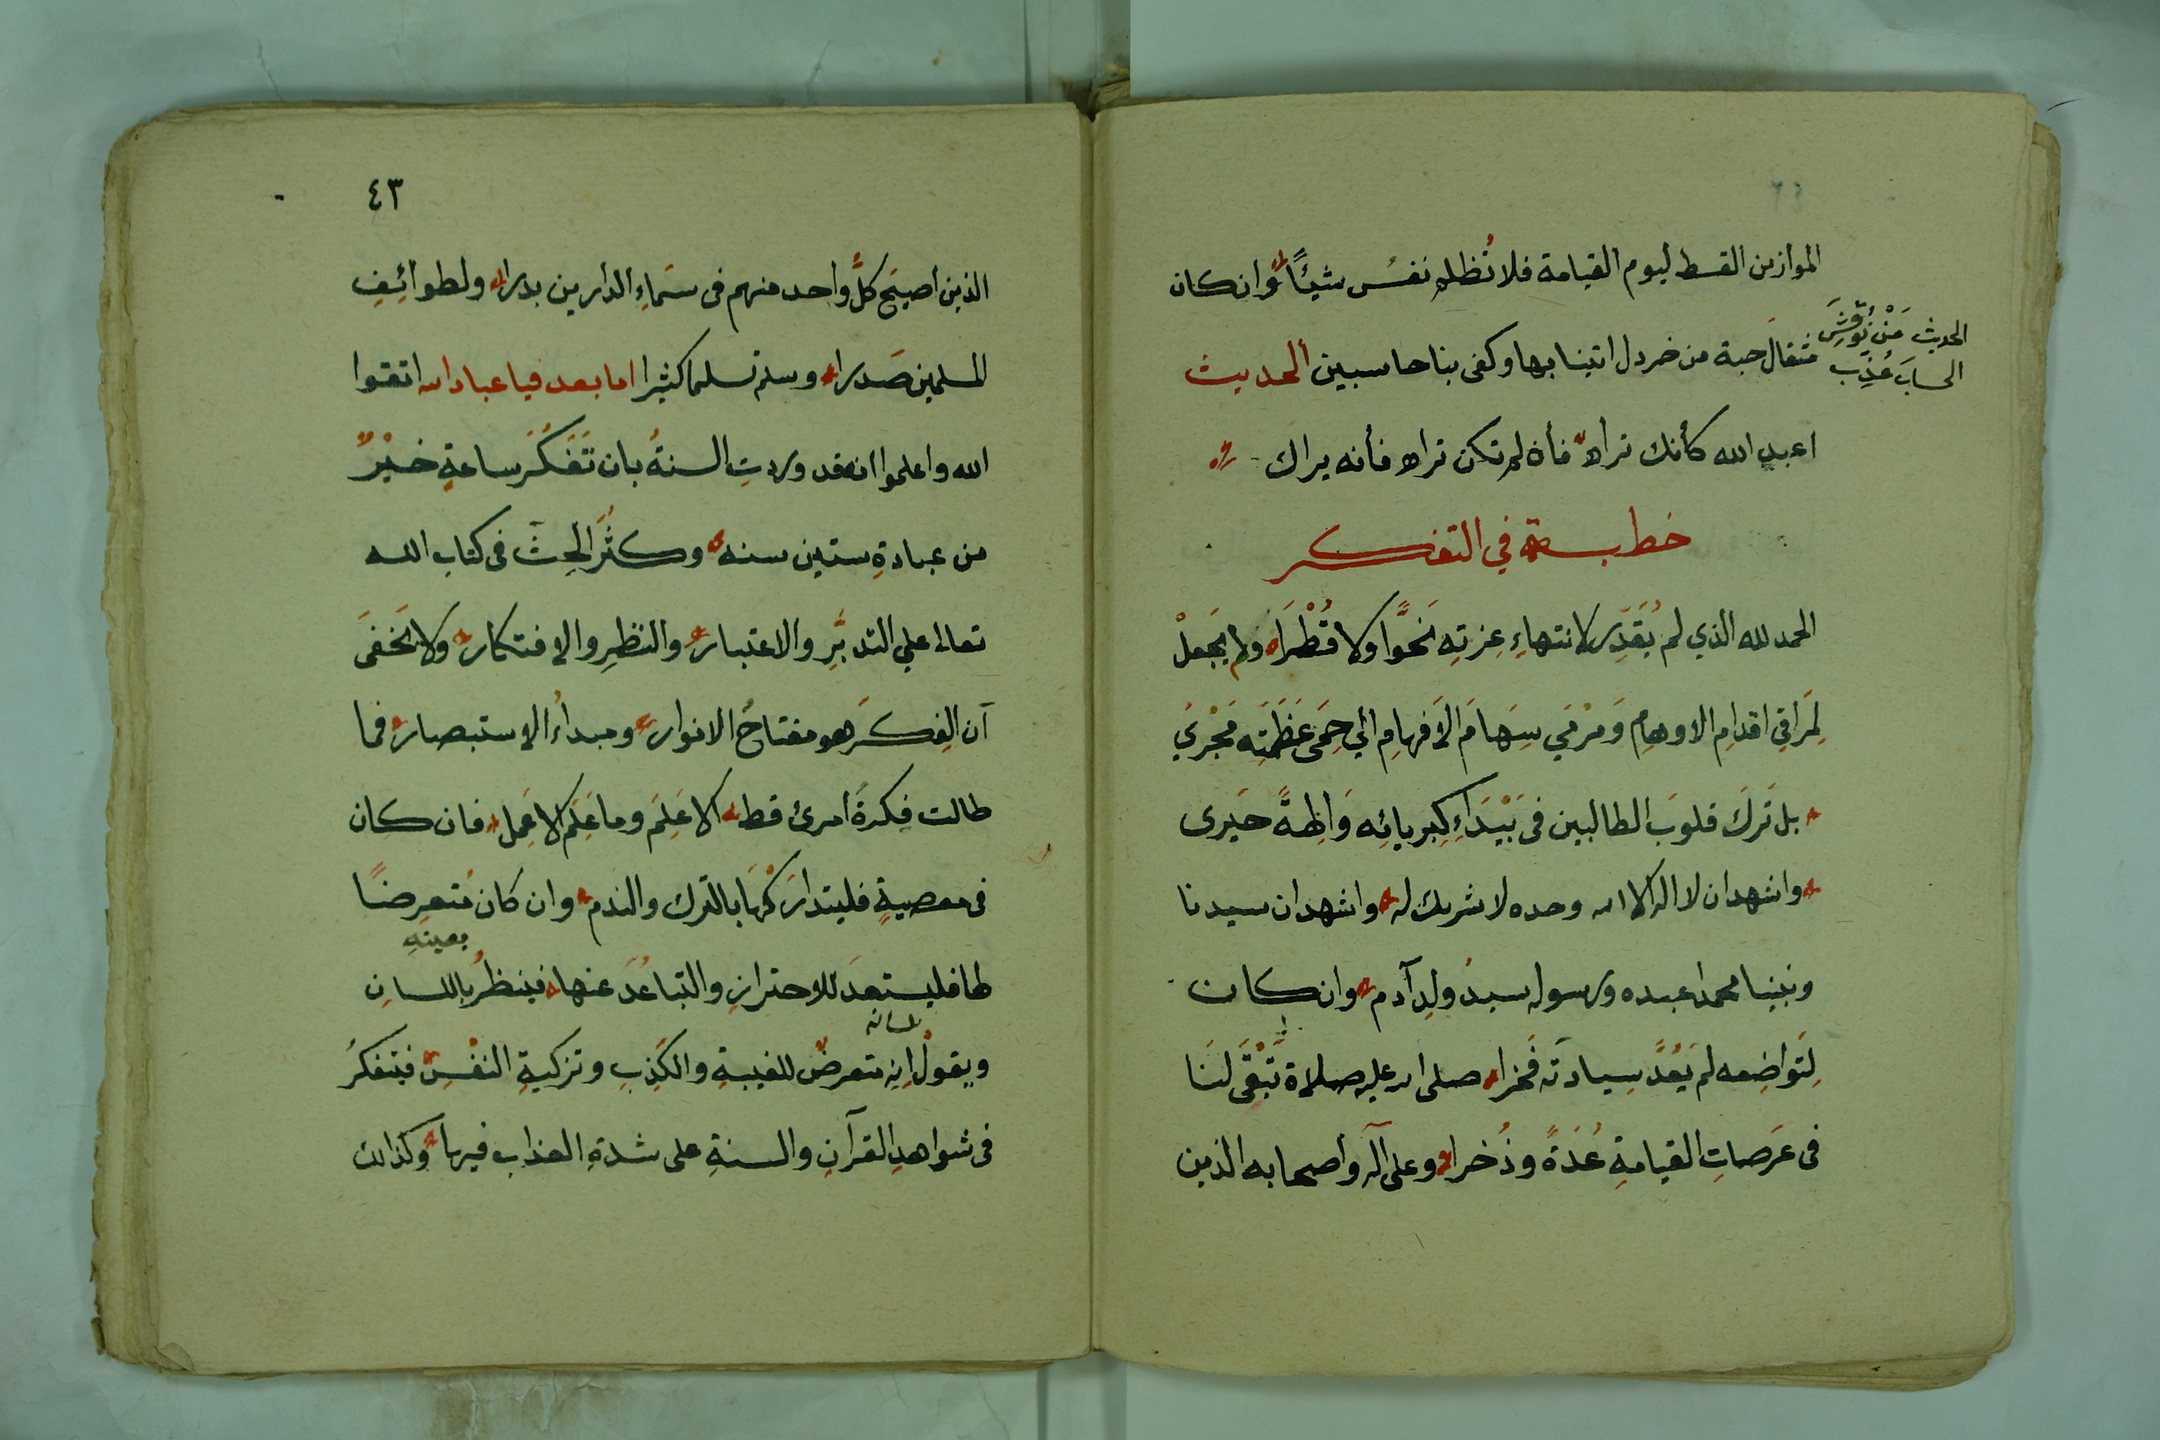 الموازين القسط ليوم القيامة فلا تُظلم نفسُ شيئًا وان كان
مثقالَ حبة من خردل اتينا بها وكفى بنا حاسبين الحديث
الحديث مَنْ نُوقِشَ
الحسابَ عُذِّب
اعبد الله كأنك تراه فأن لم تكن تراه فأنه يراك
خطبة في التفكر
الحمد لله الذي لم يُقَدِّر لانتهاءِ عِزتِه نَحوًا ولا قُطْرَا ولم يَجعلْ
لِمَراقِي اقدامِ الاوهامِ وَمرْمَي سِهامَ الأَفهامِ الي حِمَى عَظَمَتِه مَجْرَي
بل تَركَ قلوبَ الطالبين في بَيْدَاءِ كِبريائِه وَالِهةً حَيرى
واشهد ان لا اله الا الله وحده لا شريك له واشهد ان سيدنا
ونبينا محمدا عبده ورسوله سيدُ ولدِ آدم وان كان
لِتَواضِعه لم يَعُدَّ سِيادَته فَخرا صلى الله عليه صلاة تَبْقَى لنَا
في عَرصاتِ القيامةِ عُدَةً وذُخرا وعلى آله وأصحابه الذين
٤٣
الذين اصبح كلُّ واحد منهم في سَماءِ الدارين بدرا ولطوائِفِ
المسلمين صَدرا وسلم تسليما كثيرا اما بعد فيا عباد الله اتقوا
الله واعلموا انه قد وردتِ السنةُ بان تَفَكُّرَ ساعةٍ خيْرٌ
من عبادةِ ستين سنه وكثُرَ الحِثَ في كتاب الله
تعالى علي التدبُّرِ والاعتبار والنظرِ والافتكار ولا يَخفَى
أن الفِكرَ هو مفتاحُ الانوار ومبدأُ الاستبصار فما
طالت فِكرةُ أمرئ قط الا عَلِمَ وما عَلِمَ الا عَمِل فان كان
في معصيةٍ فليتدارَكْهَا بالترك والندم وان كان مُتعرِضًا
بعينهِ
لها فليستعدَ للاحترازِ والتباعُدَ عنها فينظرُ باللسانِ
لسانه
ويقولُ إنه متعرضٌ للغيبةِ والكَذِبِ وتزكيةِ النفْسِ فيتفكرُ
في شواهدِ القرآنِ والسنةِ على شدةِ العذاب فيها وكذلك